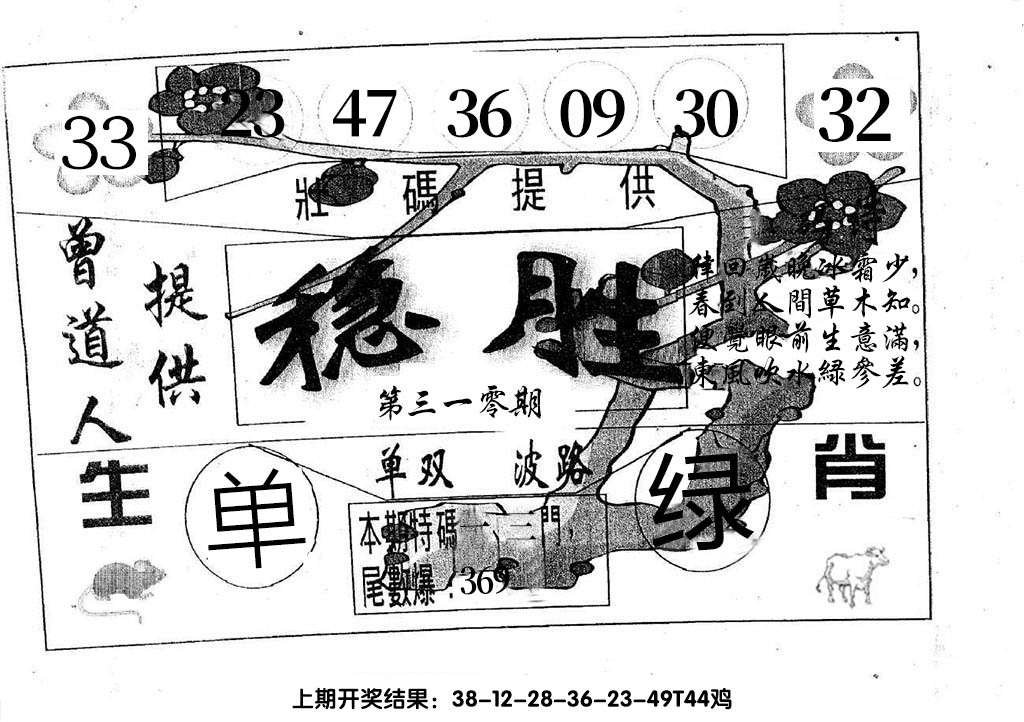 33 23 47 36 09 30 32
壯碼提供
曾道人
提供
稳胜
第三一零期
桂回歲晚冰霜少，
春到人間草木知。
便覺眼前生意滿，
東風吹水綠參差。
单双 波路
生肖
单
绿
本期特碼一、三門，
尾數爆：369
上期开奖结果：38-12-28-36-23-49T44鸡